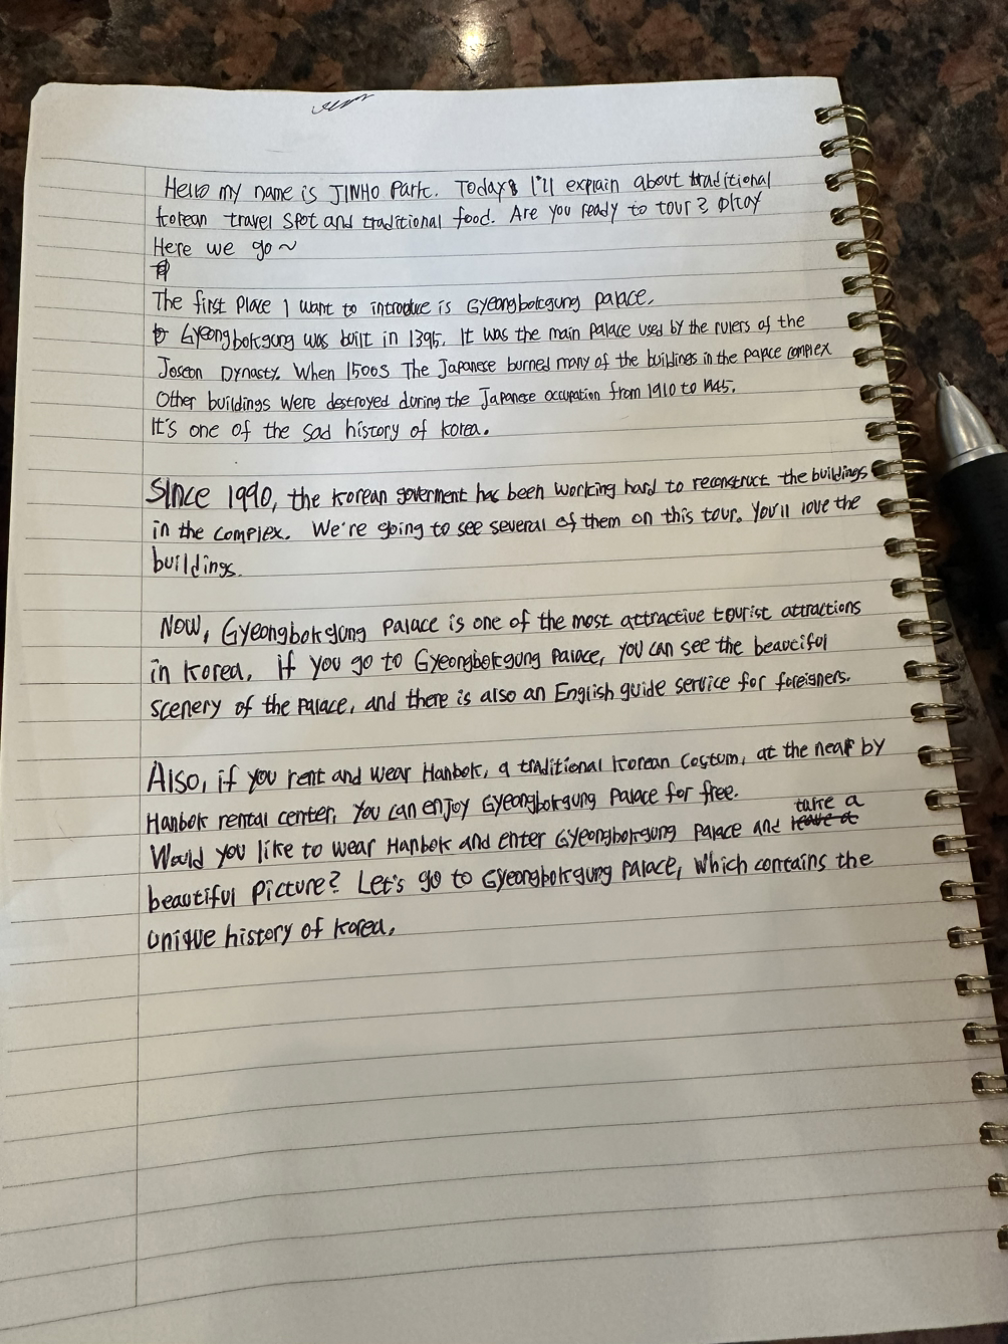 Hello my name is JINHO Park. Today I'll explain about traditional
korean travel spot and traditional food. Are you ready to tour? Okay
Here we go~
The first place I want to introduce is Gyeongbokgung palace.
Gyeongbokgung was built in 1395. It was the main palace used by the rulers of the
Joseon Dynasty. When 1500s The Japanese burned many of the buildings in the palace complex
Other buildings were destroyed during the Japanese occupation from 1910 to 1945.
It's one of the sad history of korea.
Since 1990, the korean goverment has been working hard to reconstruct the buildings
in the complex. We're going to see several of them on this tour. You'll love the
buildings.
Now, Gyeongbokgung palace is one of the most attractive tourist attractions
in korea, if you go to Gyeongbokgung palace, you can see the beautiful
scenery of the palace, and there is also an English guide service for foreigners.
Also, if you rent and wear Hanbok, a traditional korean costum, at the near by
Hanbok rental center, You can enjoy Gyeongbokgung palace for free.
take a
Would you like to wear Hanbok and enter Gyeongbokgung palace and
beautiful picture? Let's go to Gyeongbokgung palace, which contains the
unique history of korea.